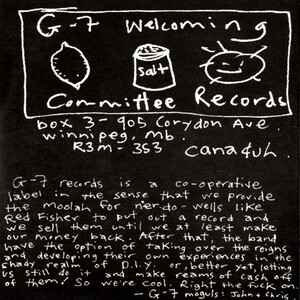 G-7 Welcoming
Salt
Committee Records
box 3 - 905 Corydon Ave.
winnipeg, mb.
R3m-3S3
canaduh.
G-7 records is a co-operative
label in the sense that we provide
the moolah for ner-do-wells like
Red Fisher to put out a record and
we sell them until we at least make
our money back. After that, the band
have the option of taking over the reigns
and developing their own experiences in the
shady realm of D.I.Y. or, better yet, letting
us still do it and make reams of cash off
of them. So we're cool. Right the fuck on
- G-7 moguls: John & Chris